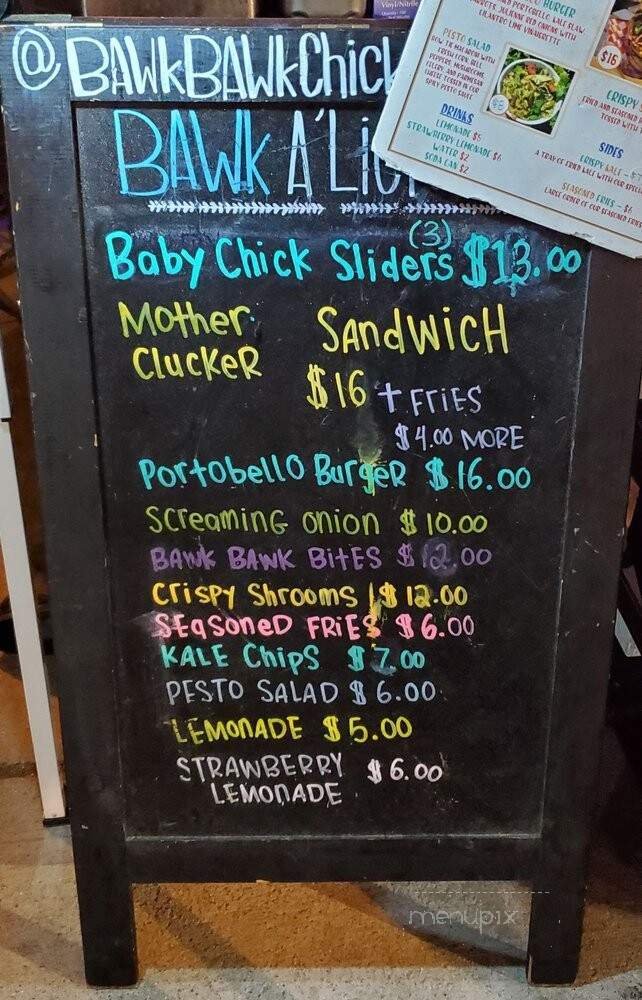 @BAWKBAWKChick
BAWK A'LICI
Baby Chick Sliders (3) $13.00
Mother Clucker SANDWICH
$16 + FRIES
$4.00 MORE
Portobello Burger $16.00
Screaming Onion $10.00
BAWK BAWK BITES $12.00
Crispy Shrooms $12.00
SEASONED FRIES $6.00
KALE Chips $7.00
PESTO SALAD $6.00
LEMONADE $5.00
STRAWBERRY LEMONADE $6.00
BURGER
CILANTRO LIME VINAIGRETTE
PESTO SALAD
BOW TIE MACARONI WITH
FRESH CORN, BELL
PEPPERS, MUSHROOMS,
CELERY, AND PARMESAN
CHEESE TOSSED IN OUR
SPICY PESTO SAUCE
$8
$16
DRINKS
LEMONADE $5
STRAWBERRY LEMONADE $6
WATER $2
SODA CAN $2
CRISPY
FRIED AND SEASONED
TOSSED WITH
SIDES
CRISPY KALE - $7
A TRAY OF FRIED KALE WITH OUR
SEASONED FRIES - $6
LARGE ORDER OF OUR SEASONED FRIES
menupix